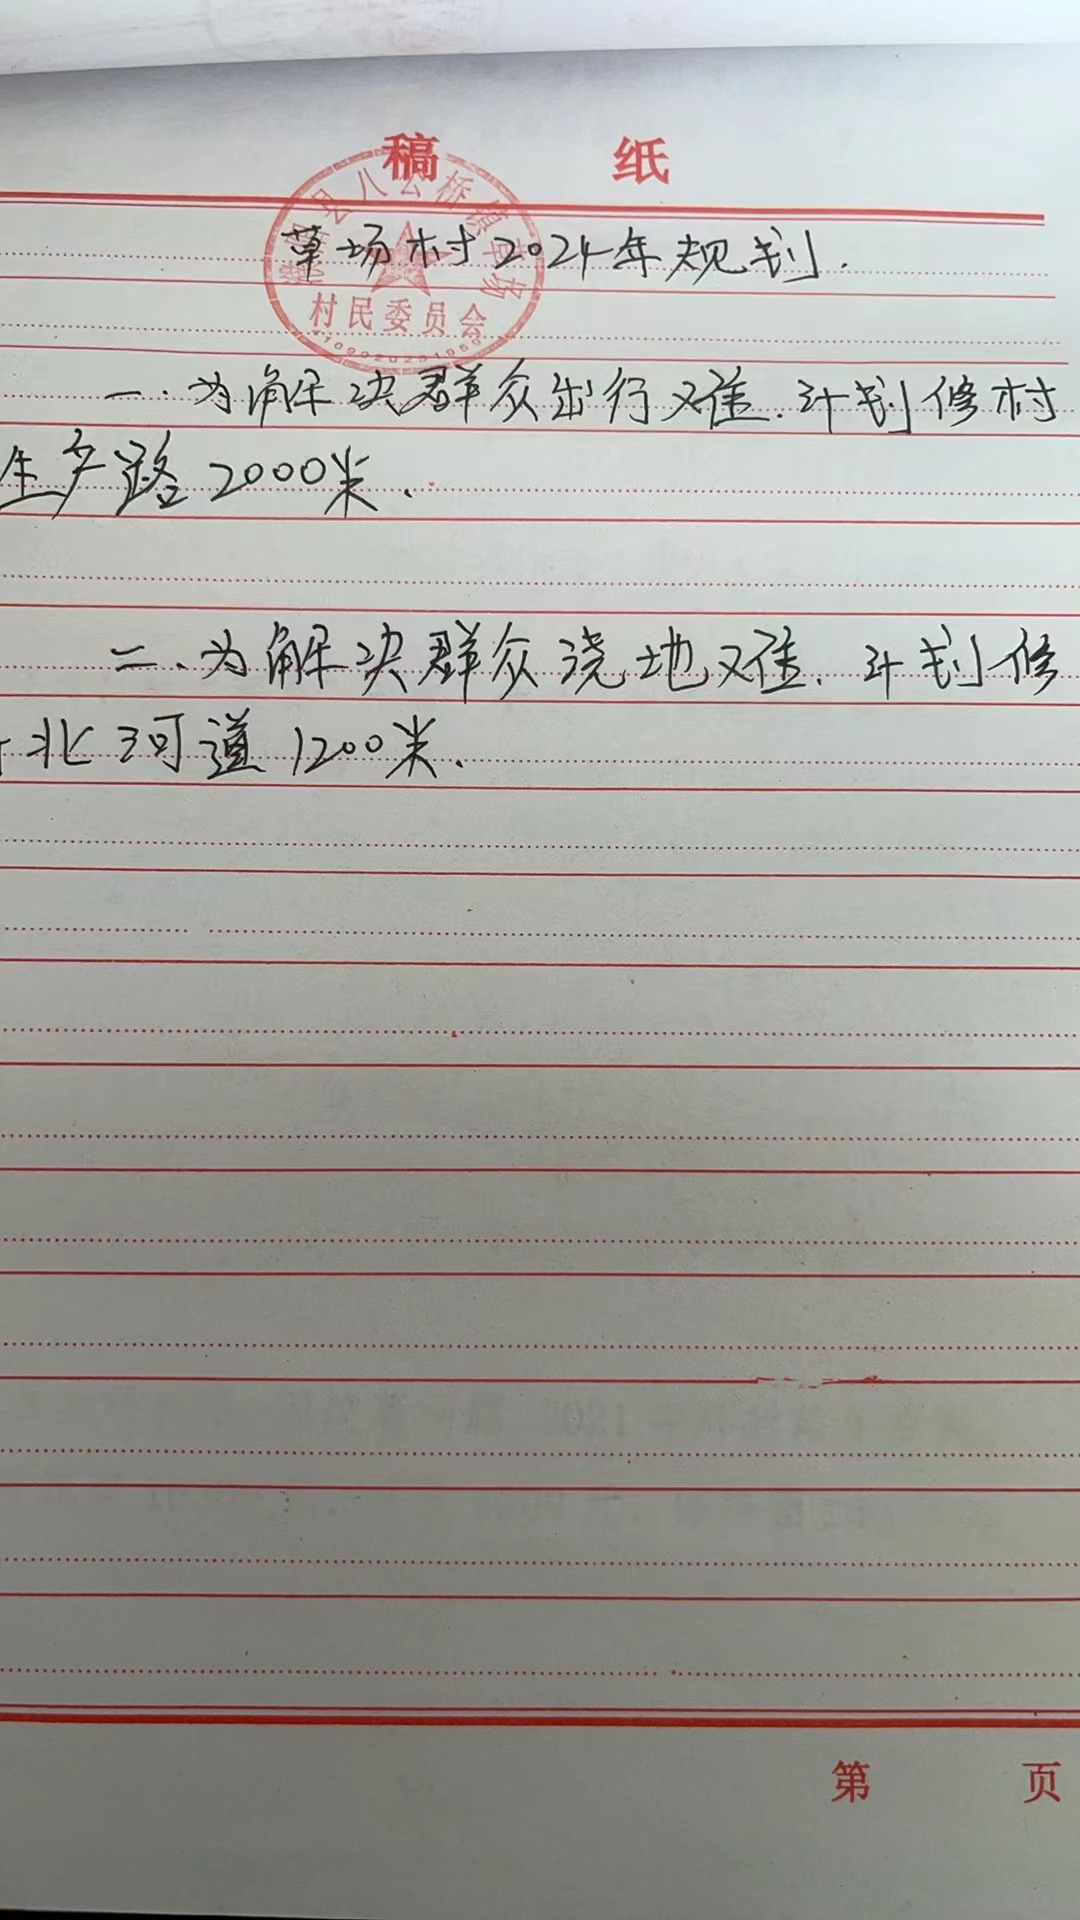 稿 纸
县八公桥镇草场
村民委员会
草场村2024年规划.
一.为解决群众出行难.计划修村
生产路2000米.
二.为解决群众浇地难.计划修
北河道1200米.
第 页